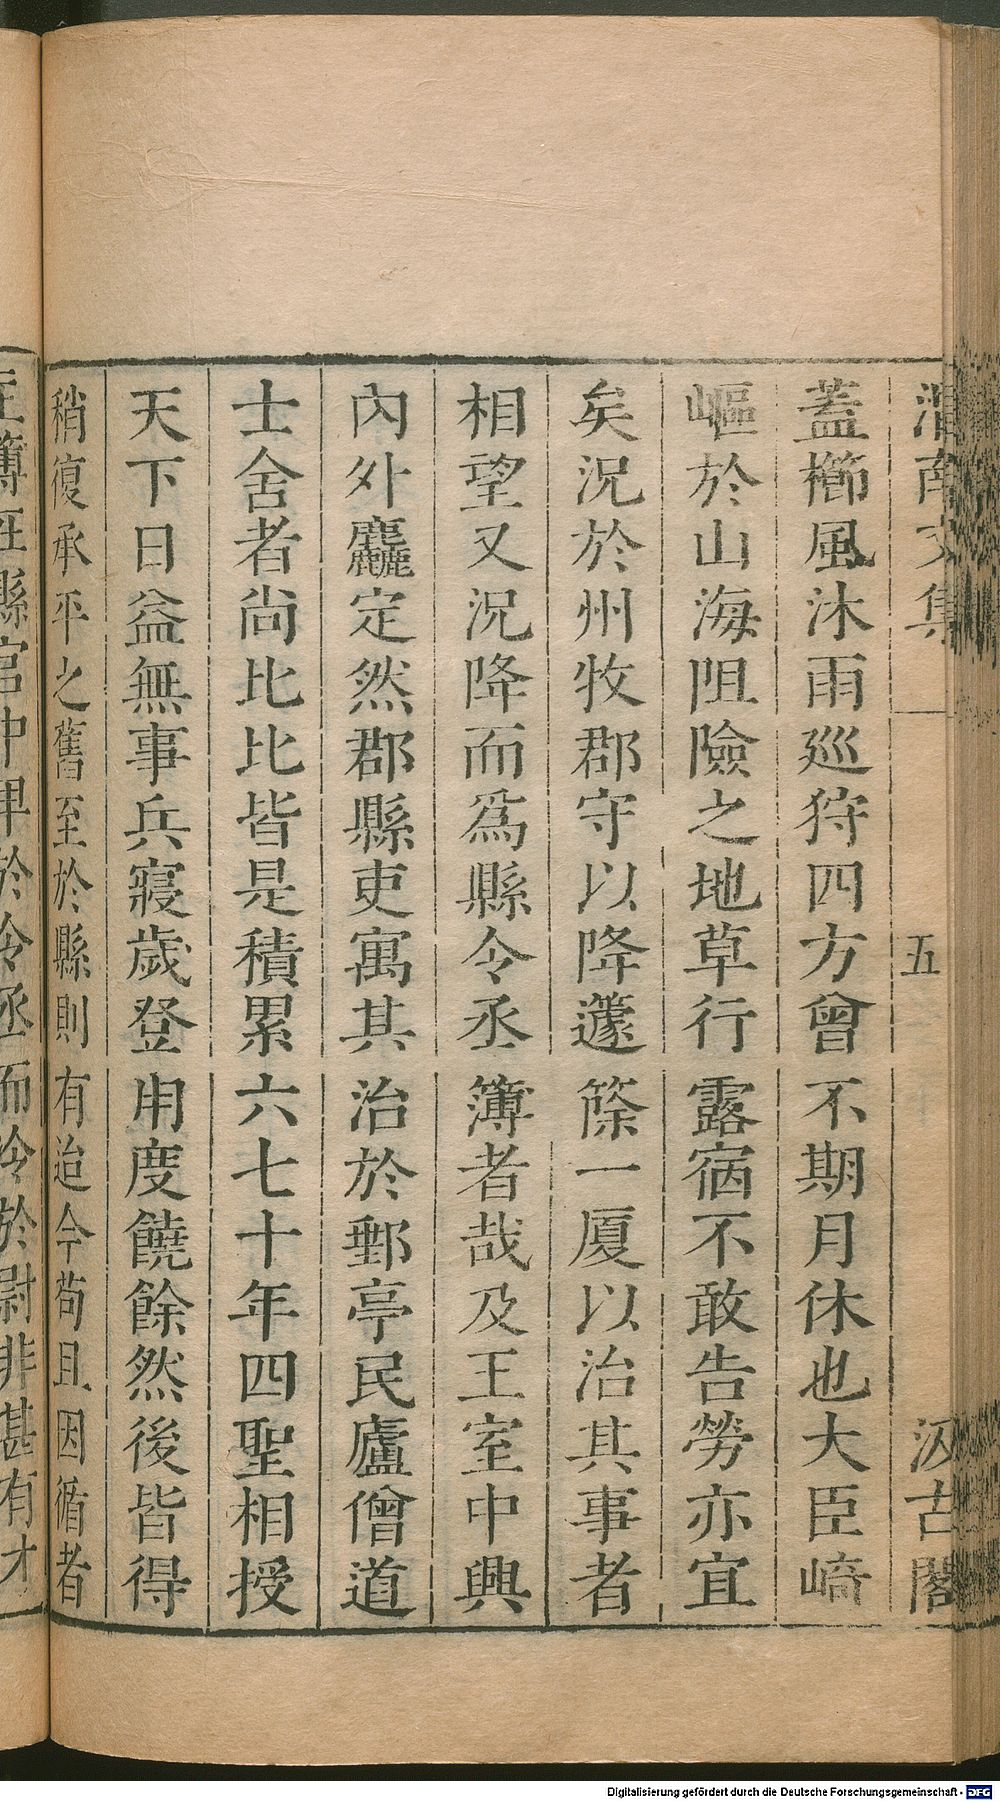 渭南文集
五
汲古閣
蓋櫛風沐雨巡狩四方曾不期月休也大臣崎
嶇於山海阻險之地草行露宿不敢告勞亦宜
矣況於州牧郡守以降籧篨一廈以治其事者
相望又況降而爲縣令丞簿者哉及王室中興
內外麤定然郡縣吏寓其治於郵亭民廬僧道
士舍者尚比比皆是積累六七十年四聖相授
天下日益無事兵寢歲登用度饒餘然後皆得
稍復承平之舊至於縣則有迨今苟且因循者
主簿在縣官中卑於令丞而冷於尉非甚有才
Digitalisierung gefördert durch die Deutsche Forschungsgemeinschaft - DFG